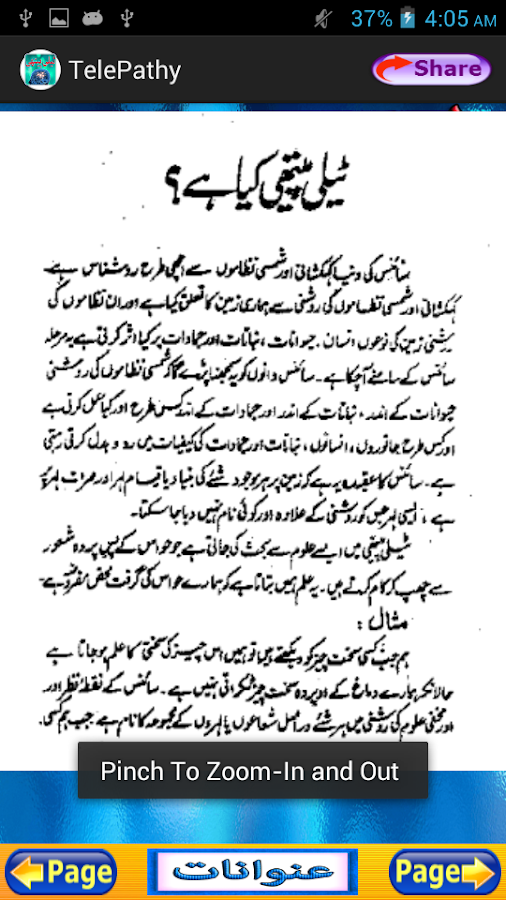 37% 4:05 AM
TelePathy
Share
ٹیلی پیتھی کیا ہے؟
سائنس کی دنیا کہکشانی اور شمسی نظاموں سے اچھی طرح روشناس ہے۔
کہکشانی اور شمسی نظاموں کی روشنی سے ہماری زمین کا تعلق کیا ہے اور ان نظاموں کی
روشنی زمین کی نوعوں انسان، حیوانات، نباتات اور جمادات پر کیا اثر کرتی ہے یہ مرحلہ
سائنس کے سامنے آچکا ہے۔ سائنس دانوں کو یہ سمجھنا پڑے گا کہ شمسی نظاموں کی روشنی
حیوانات کے اندر، نباتات کے اندر اور جمادات کے اندر کس طرح اور کیا عمل کرتی ہے
اور کس طرح جانوروں، انسانوں، نباتات اور جمادات کی کیفیات میں رد و بدل کرتی رہتی
ہے۔ سائنس کا عقیدہ یہ ہے کہ زمین پر ہر موجود شئے کی بنیاد یا قیام لہر اور صرف لہر پر
ہے، ایسی لہر جس کو روشنی کے علاوہ اور کوئی نام نہیں دیا جا سکتا۔
ٹیلی پیتھی میں ایسے علوم سے بحث کی جاتی ہے جو حواس کے پس پردہ شعور
سے چھپ کر کام کرتے ہیں۔ یہ علم ہمیں بتاتا ہے کہ ہمارے حواس کی گرفت محض مفروضہ ہے۔
مثال:
ہم جب کسی سخت چیز کو دیکھتے ہیں تو ہمیں اس چیز کی سختی کا علم ہو جاتا ہے
حالانکہ ہمارے دماغ کے اوپر وہ سخت چیز ٹکراتی نہیں ہے۔ سائنس کے نقطۂ نظر اور
اور مخفی علوم کی روشنی میں ہر شئے دراصل شعاعوں یا لہروں کے مجموعہ کا نام ہے۔ جب ہم کسی
Pinch To Zoom-In and Out
Page
عنوانات
Page